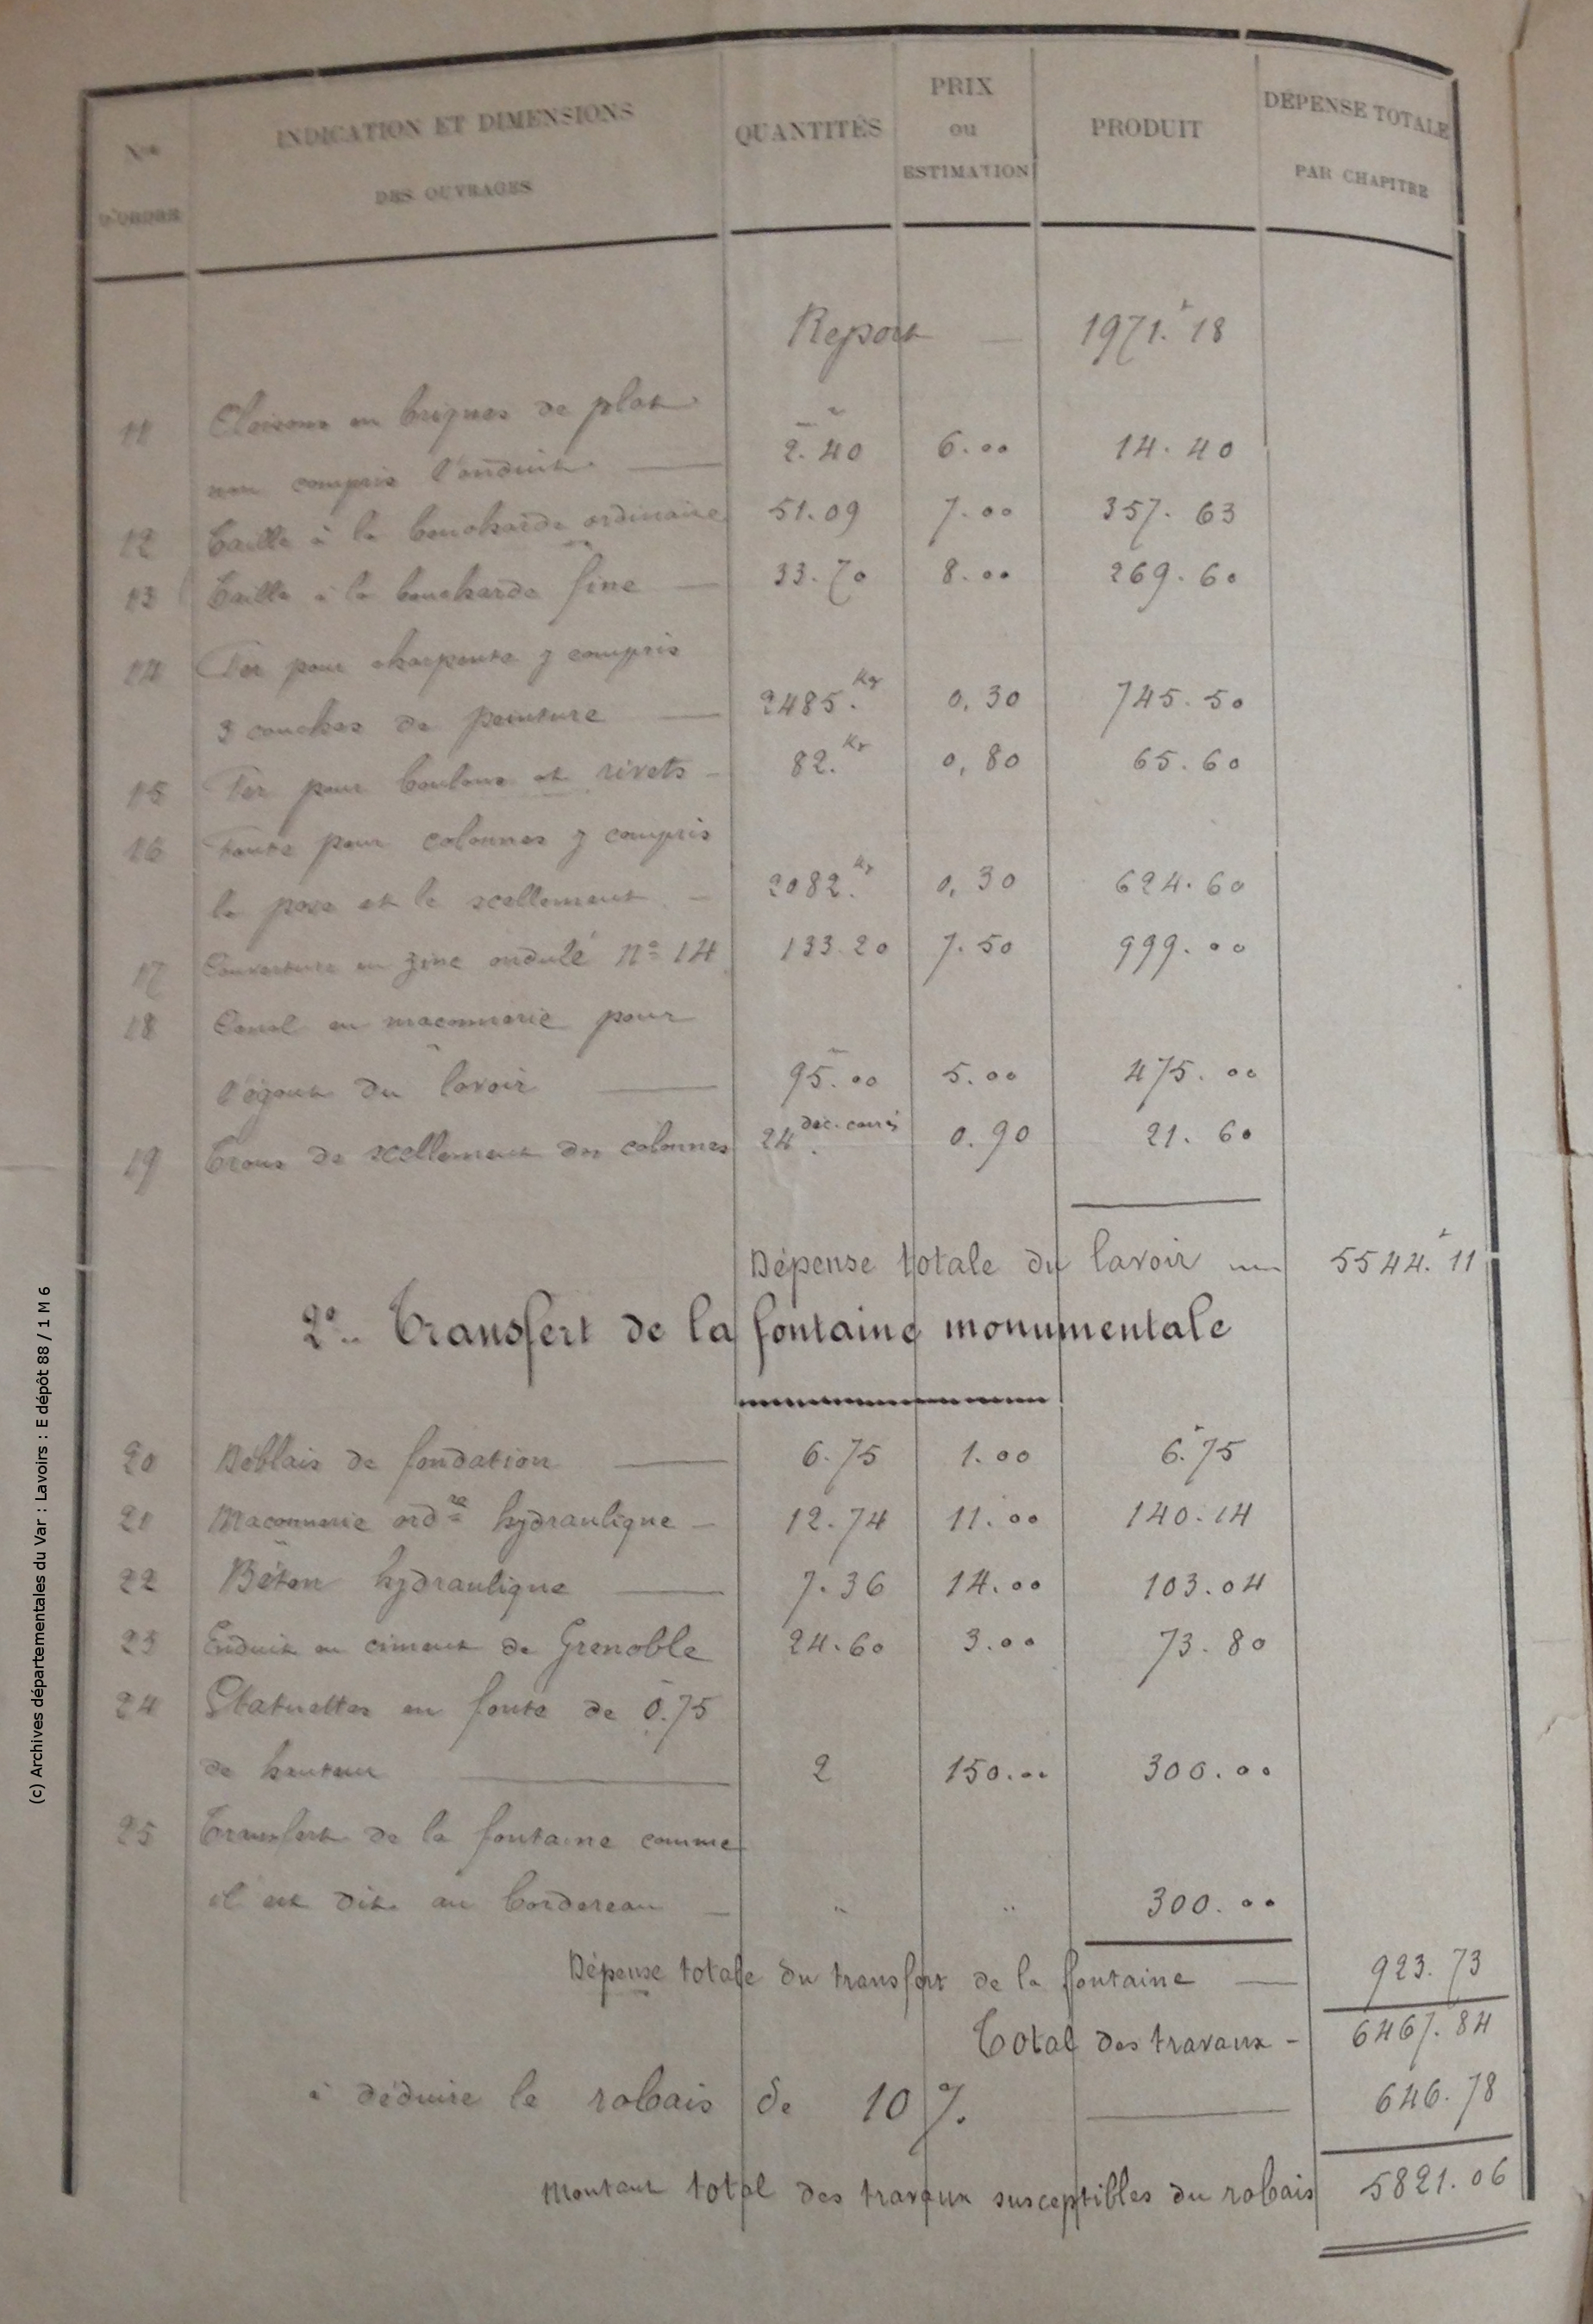 Nos D'ORDRE
INDICATION ET DIMENSIONS DES OUVRAGES
QUANTITÉS
PRIX ou ESTIMATION
PRODUIT
DÉPENSE TOTALE PAR CHAPITRE
Report — 1971.f 18
11 Cloisons en briques de plat
non compris l'enduit — 2.40 6.00 14.40
12 Taille à la boucharde ordinaire 51.09 7.00 357.63
13 Taille à la boucharde fine — 33.70 8.00 269.60
14 Fer pour charpente y compris
3 couches de peinture — 2485.Kg 0,30 745.50
15 Fer pour boulons et rivets — 82.Kg 0,80 65.60
16 Fonte pour colonnes y compris
la pose et le scellement — 2082.Kg 0,30 624.60
17 Couverture en zinc ondulé no 14 133.20 7.50 999.00
18 Canal en maconnerie pour
l'égout du lavoir — 95.00 5.00 475.00
19 Trous de scellement des colonnes 24 déc. carrés 0.90 21.60
Dépense totale du lavoir 5544.f 11
2o.. Transfert de la fontaine monumentale
20 Déblais de fondation — 6.75 1.00 6.f75
21 Maconnerie ordre hydraulique — 12.74 11.00 140.14
22 Béton hydraulique — 7.36 14.00 103.04
23 Enduit en ciment de Grenoble 24.60 3.00 73.80
24 Statuettes en fonte de 0.75
de hauteur — 2 150.00 300.00
25 Transfert de la fontaine comme
il est dit au bordereau — " " 300.00
Dépense totale du transfert de la fontaine — 923.73
Total des travaux - 6467.84
à déduire le rabais de 10 %. — 646.78
Montant total des travaux susceptibles du rabais 5821.06
(c) Archives départementales du Var : Lavoirs : E dépôt 88 / 1 M 6